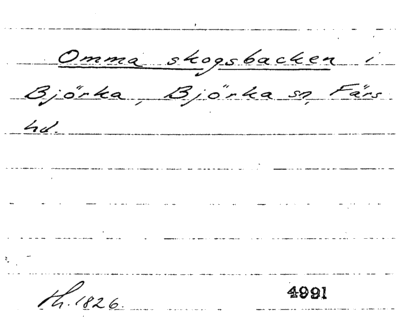 Omma skogsbacken i
Björka, Björka sn, Färs
hd.
Th. 1826. 4991